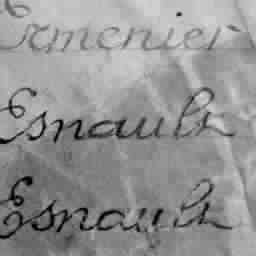 Ermenier
Esnault
Esnault